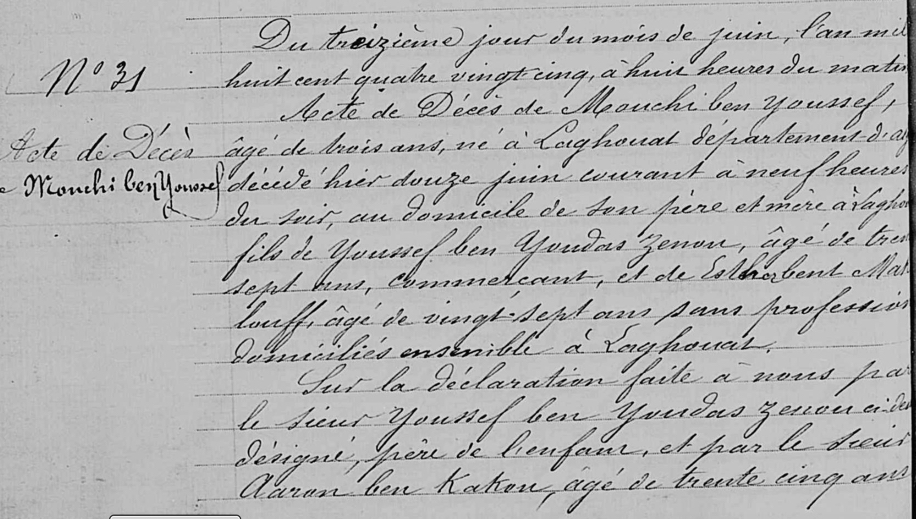 Nº 31
Acte de Décès
e Mouchi ben Youssef
Du treizième jour du mois de juin, l'an mil
huit cent quatre vingt cinq, à huit heures du matin
Acte de Décès de Mouchi ben Youssef,
âgé de trois ans, né à Laghouat département d'al
décédé hier douze juin courant à neuf heures
du soir, au domicile de son père et mère à Lagho
fils de Youssef ben Youdas Zenou, âgé de tren
sept ans, commerçant, et de Esther bent Mak
louff, âgé de vingt-sept ans sans profession
domiciliés ensemble à Laghouat.
Sur la déclaration faite à nous pa
le sieur Youssef ben Youdas Zenou ci-des
désigné, père de l'enfant, et par le sieur
Aaron ben Kakou, âgé de trente cinq ans